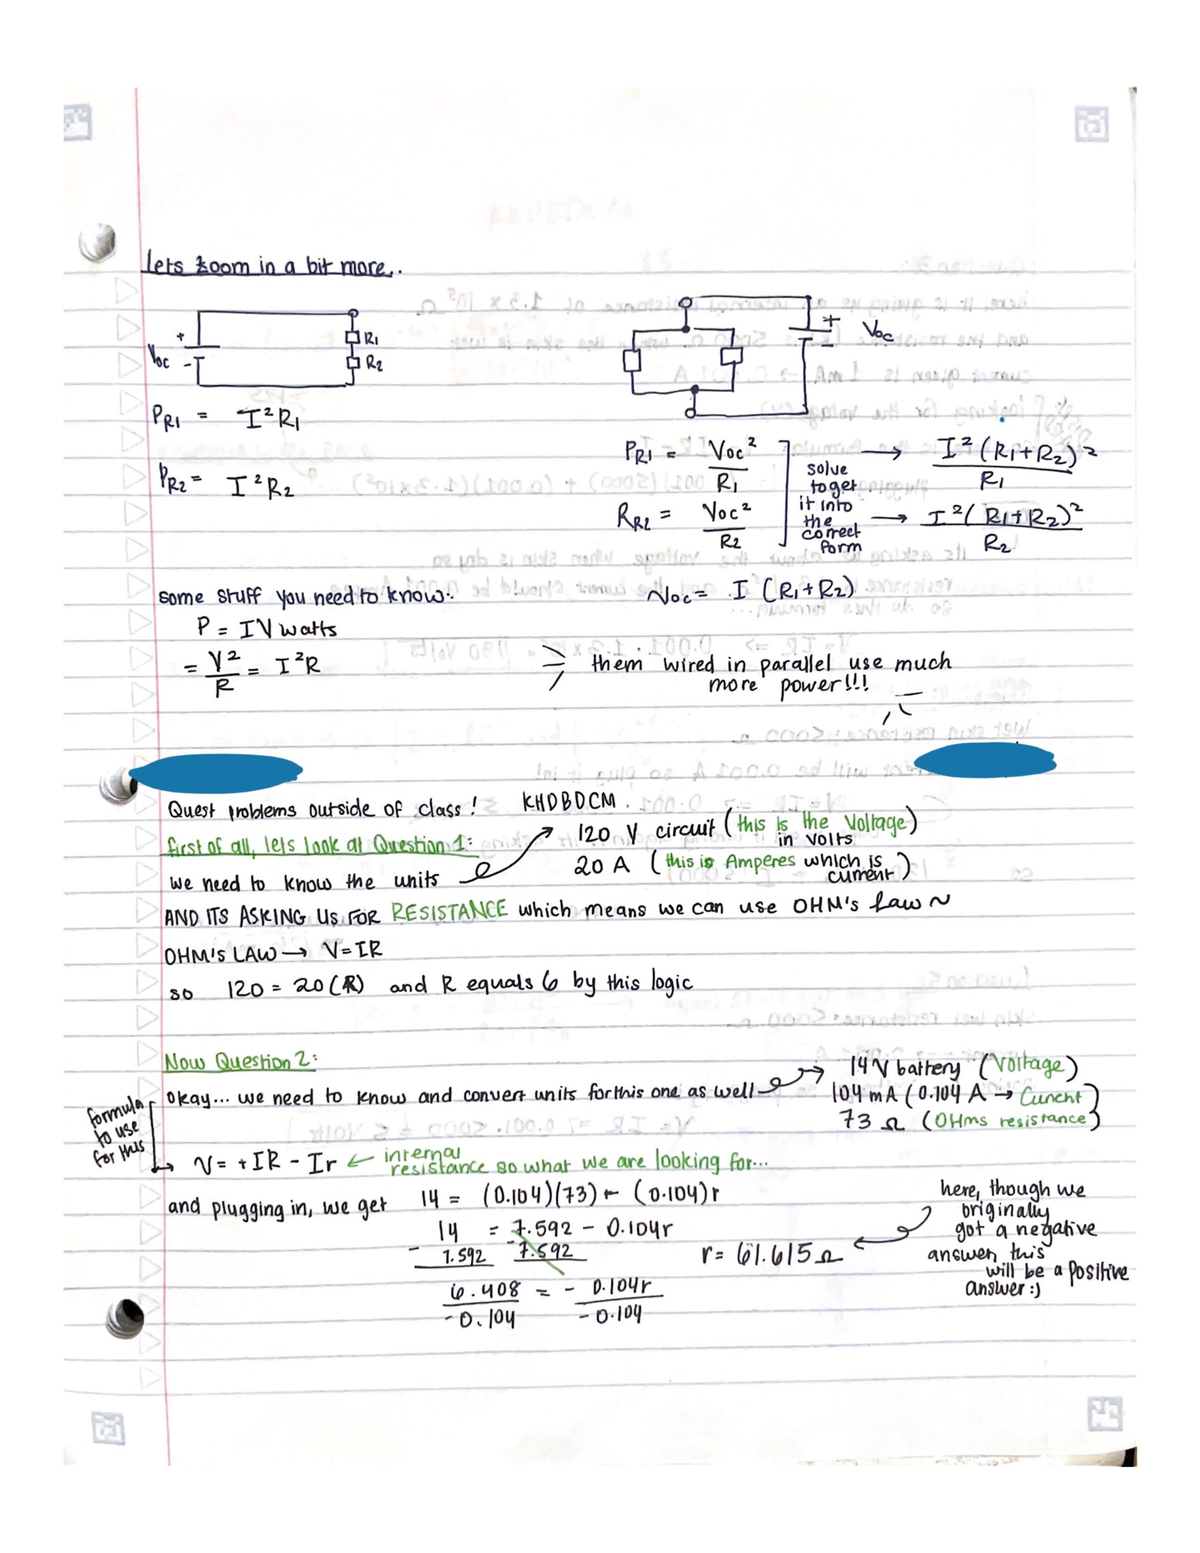 Lets zoom in a bit more..
+
Voc
-
R1
R2
+
-
Voc
PR1 = I²R1
PR2 = I²R2
PR1 = Voc²/R1 → I²(R1+R2)²/R1
RR2 = Voc²/R2 → I²(R1+R2)²/R2
solve
to get
it into
the
correct
form
some stuff you need to know:
Voc = I (R1+R2)
P = IV watts
= V²/R = I²R
them wired in parallel use much
more power!!!
Quest problems outside of class! KHDBDCM.
first of all, lets look at Question 1:
120 V circuit (this is the Voltage)
in volts
we need to know the units
20 A (this is Amperes which is
current)
AND ITS ASKING US FOR RESISTANCE which means we can use OHM's Law ~
OHM'S LAW → V=IR
so 120 = 20(R) and R equals 6 by this logic
Now Question 2:
14V battery (Voltage)
okay... we need to know and convert units for this one as well
104 mA (0.104 A → Current)
73 Ω (OHms resistance)
formula
to use
for this
V = +IR - Ir ← internal
resistance so what we are looking for...
and plugging in, we get 14 = (0.104)(73) - (0.104)r
14 = 7.592 - 0.104r
- 7.592 -7.592
6.408 = - 0.104r
-0.104 -0.104
r = 61.615Ω
here, though we
originally
got a negative
answer, this
will be a positive
answer :)